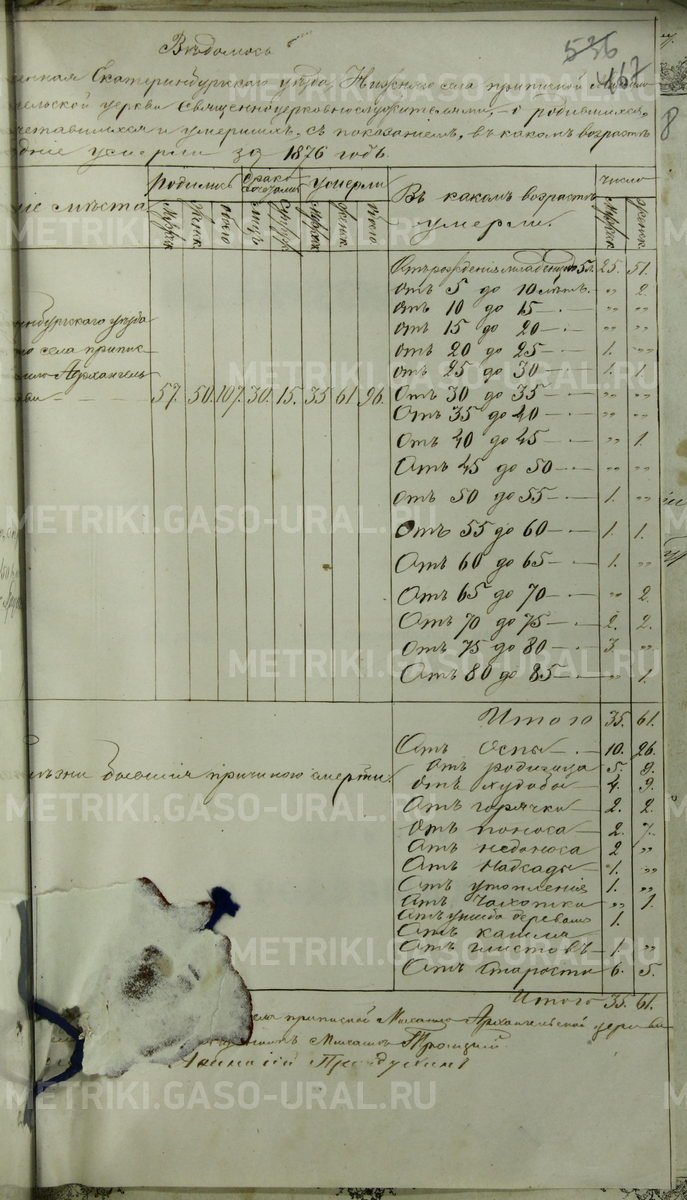 Вѣдомость
536
467
8
Екатеринбургскаго уѣзда Нижняго села приписной
церкви священноцерковнослужителями, о родившихся,
сочетавшихся и умершихъ, съ показаніемъ, въ какомъ возрастѣ
умерли за 1876 годъ.
Родились Умерли Въ какомъ возрастѣ умерли. Число
мѣста Мужск. Женск. Всего Лицъ Супруж. Мужск. Женск. Всего Мужск. Женск.
Отъ рожденія младенцевъ 5 л. 25. 51.
Отъ 5 до 10 лѣтъ. „ 2.
Отъ 10 до 15 — „ „
Отъ 15 до 20 — „ „
Отъ 20 до 25 — 1. „
Отъ 25 до 30 — 1. 1.
уѣзда
села припис
Архангель
57. 50. 107. 30. 15. 35. 61. 96.
Отъ 30 до 35 — „ „
Отъ 35 до 40 — „ „
Отъ 40 до 45 — „ 1.
Отъ 45 до 50 — „ „
Отъ 50 до 55 — 1. „
Отъ 55 до 60 — 1. 1.
Отъ 60 до 65 — 1. „
Отъ 65 до 70 — „ 2.
Отъ 70 до 75 — 2. 2.
Отъ 75 до 80 — 3. „
Отъ 80 до 85 — „ 1.
Итого 35. 61.
бывшія причиною смерти.
Отъ оспы — 10. 26.
Отъ родимца 5. 9.
Отъ худобы 4. 9.
Отъ горячки 2. 2.
Отъ поноса 2. 7.
Отъ недоноса 2 „
Отъ надсады 1. „
Отъ утопленія 1. „
Отъ чахотки „ 1.
Отъ ушиба деревомъ 1.
Отъ кашля
Отъ глистовъ 1. „
Отъ старости 6. 5.
Итого 35. 61.
села приписной Михаило-Архангельской церкви
Троицкій
METRIKI.GASO-URAL.RU